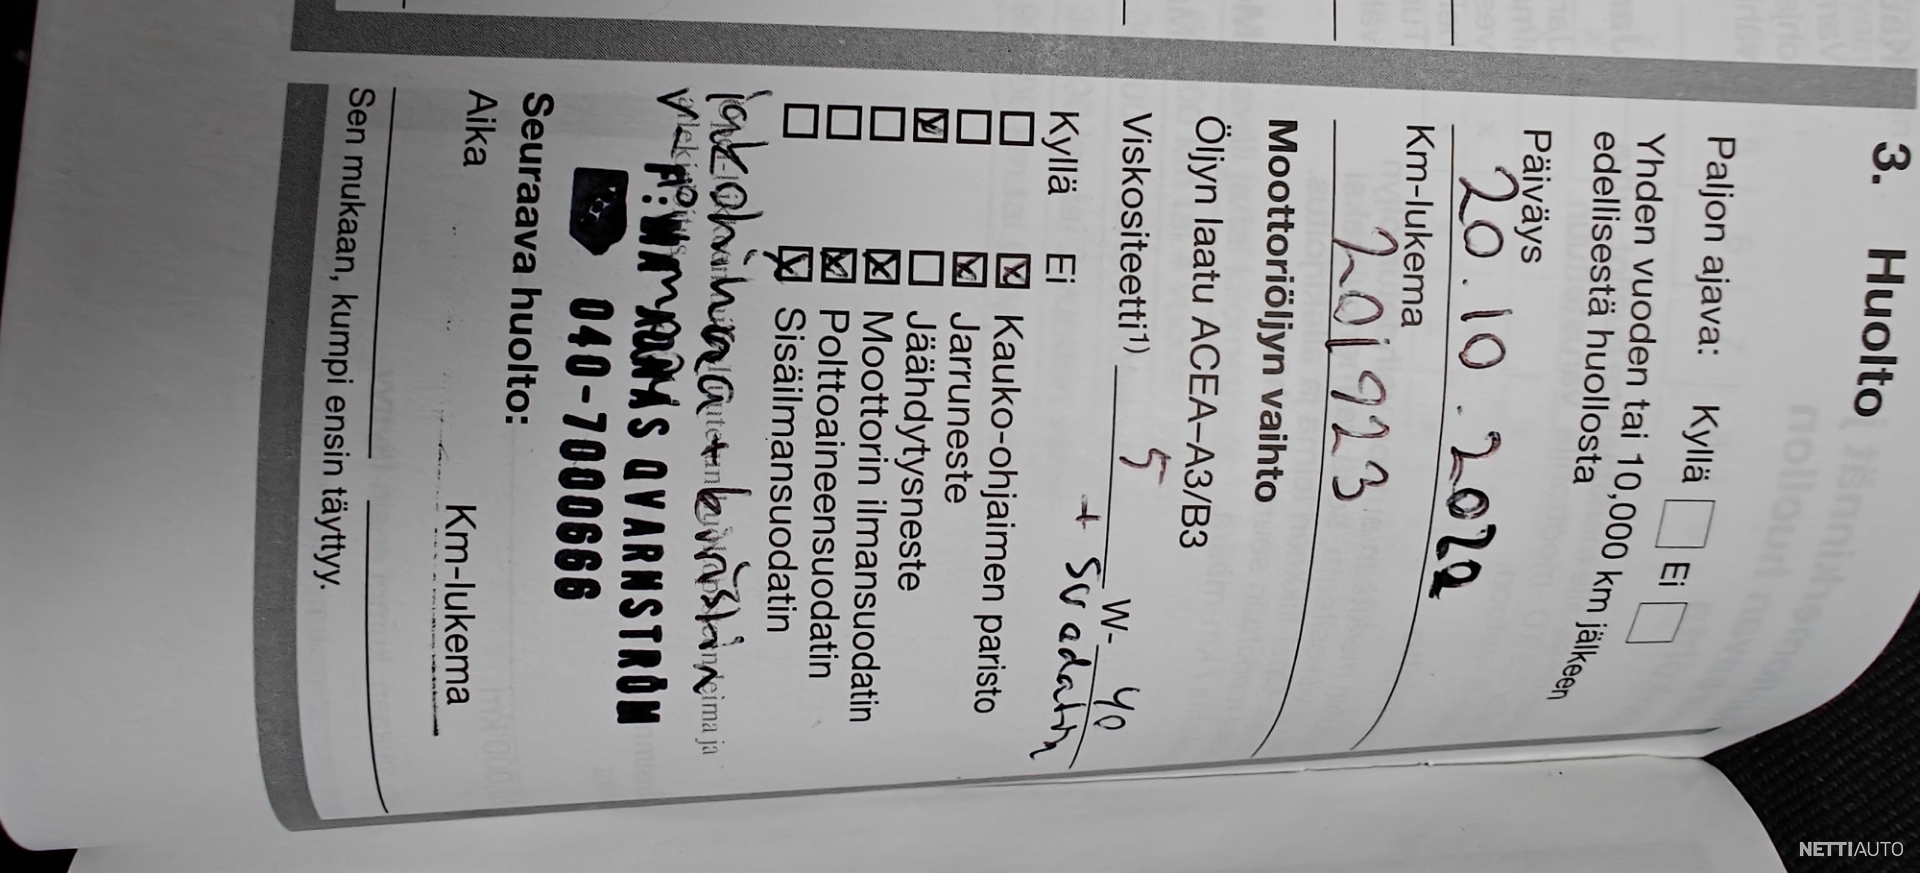 3. Huolto
Paljon ajava: Kyllä Ei
Yhden vuoden tai 10,000 km jälkeen
edellisestä huollosta
Päiväys
20.10.2022
Km-lukema
201923
Moottoriöljyn vaihto
Öljyn laatu ACEA–A3/B3
Viskositeetti¹⁾ 5 W- 40
+ suodatin
Kyllä Ei
Kauko-ohjaimen paristo
Jarruneste
Jäähdytysneste
Moottorin ilmansuodatin
Polttoaineensuodatin
Sisäilmansuodatin
jakohihnat
QVARNSTRÖM
040-7000666
Seuraava huolto:
Aika Km-lukema
Sen mukaan, kumpi ensin täyttyy.
NETTIAUTO